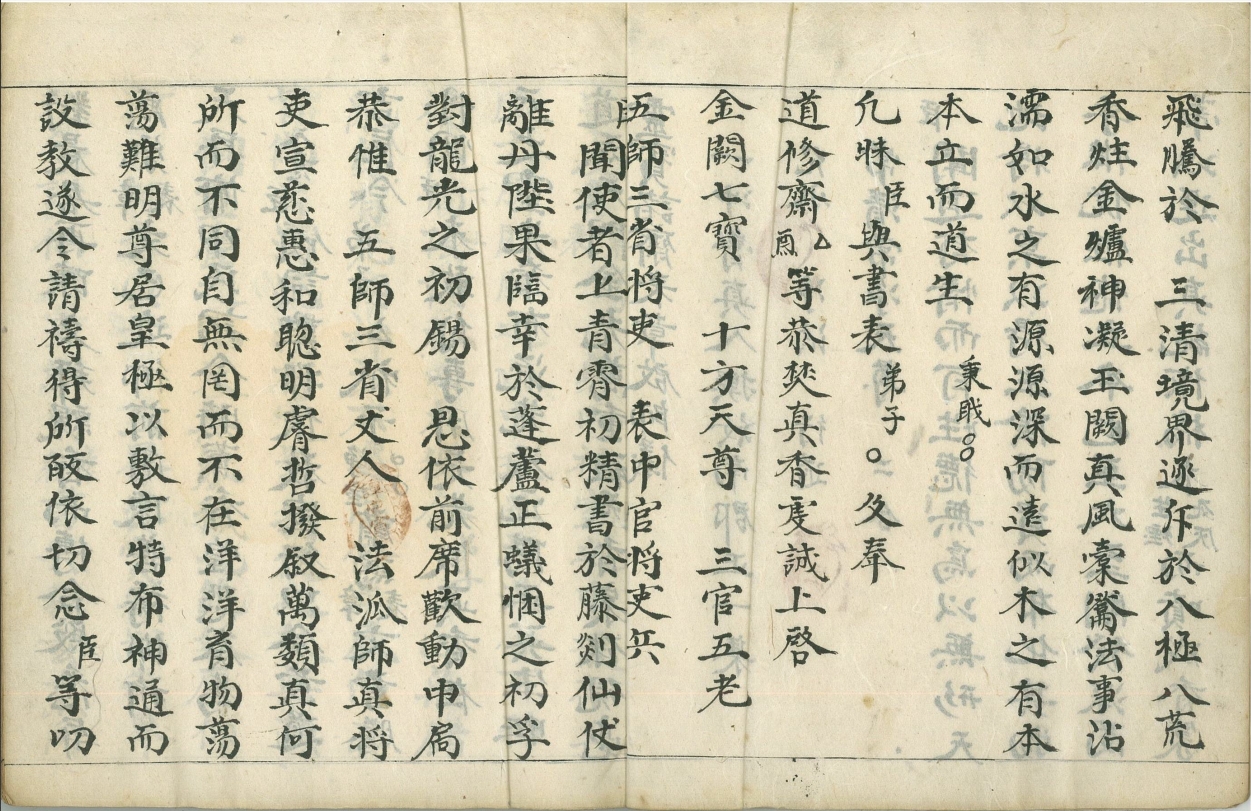 飛騰於　三清境界逐斥於八極八荒
香炷金爐神凝玉闕真風橐籥法事沾
濡如水之有源源深而遠似木之有本
本立而道生　秉戩○○
凢昧臣與書表弟子○○攵奉
道修齋凢等恭焚真香虔誠上啓
金闕七寳　十方天尊　三官五老
五師三省將吏　表申官將吏兵
聞使者上青霄初精書於藤剡仙仗
離丹陛果臨幸於蓬蘆正蟻悃之初孚
對龍光之初錫　恩依前席歡動中扃
恭惟　五師三省丈人　法泒師真將
吏宣慈惠和聦明睿哲撥叙萬類真何
所而不同自無罔而不在洋洋育物蕩
蕩難明尊居皇極以敷言特布神通而
設教遂令請禱得所皈依切念臣等叨